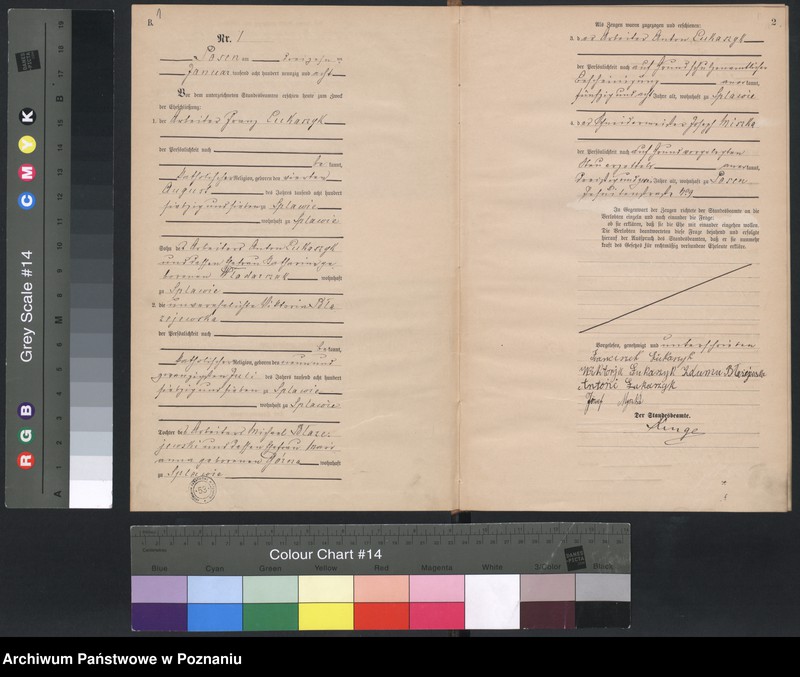 B.
1
Nr. 1
Posen am dreizehn ten
Januar tausend acht hundert neunzig und acht
Vor dem unterzeichneten Standesbeamten erschienen heute zum Zweck
der Eheschließung:
1. der Arbeiter Franz Lukaszyk
der Persönlichkeit nach
be kannt,
katholischer Religion, geboren den vierten
August des Jahres tausend acht hundert
siebzig und sieben zu Splawie
wohnhaft zu Splawie
Sohn des Arbeiters Anton Lukaszyk
und dessen Ehefrau Katharina ge
borenen wohnhaft
zu Splawie
2. die unverehelichte Viktoria Bla
zejewska
der Persönlichkeit nach
be kannt,
katholischer Religion, geboren den neun und
zwanzigsten Juli des Jahres tausend acht hundert
siebzig und sieben zu Splawie
wohnhaft zu Splawie
Tochter des Arbeiters Michael Blaze-
jewski und dessen Ehefrau Mari
anna geborenen Górna wohnhaft
zu Splawie
53
2
Als Zeugen waren zugezogen und erschienen:
3. der Arbeiter Anton Lukaszyk
der Persönlichkeit nach auf Grund
Bescheinigung anerkannt,
fünfzig und acht Jahre alt, wohnhaft zu Splawie
4. der Schneidermeister Joseph
der Persönlichkeit nach auf Grund vorgelegten
Steuerzettels anerkannt,
Jahre alt, wohnhaft zu Posen
In Gegenwart der Zeugen richtete der Standesbeamte an die
Verlobten einzeln und nach einander die Frage:
ob sie erklären, daß sie die Ehe mit einander eingehen wollen.
Die Verlobten beantworteten diese Frage bejahend und erfolgte
hierauf der Ausspruch des Standesbeamten, daß er sie nunmehr
kraft des Gesetzes für rechtmäßig verbundene Eheleute erkläre.
Vorgelesen, genehmigt und unterschrieben
Franciszek Łukaszyk
Wiktorya Łukaszyk Blazejewska
Antoni Łukaszyk
Józef
Der Standesbeamte.
Grey Scale #14
R G B
C M Y K
A
M
B
DANES PICTA
Centimetres
Colour Chart #14
Blue Cyan Green Yellow Red Magenta White 3-Color Black
DANES PICTA
Archiwum Państwowe w Poznaniu